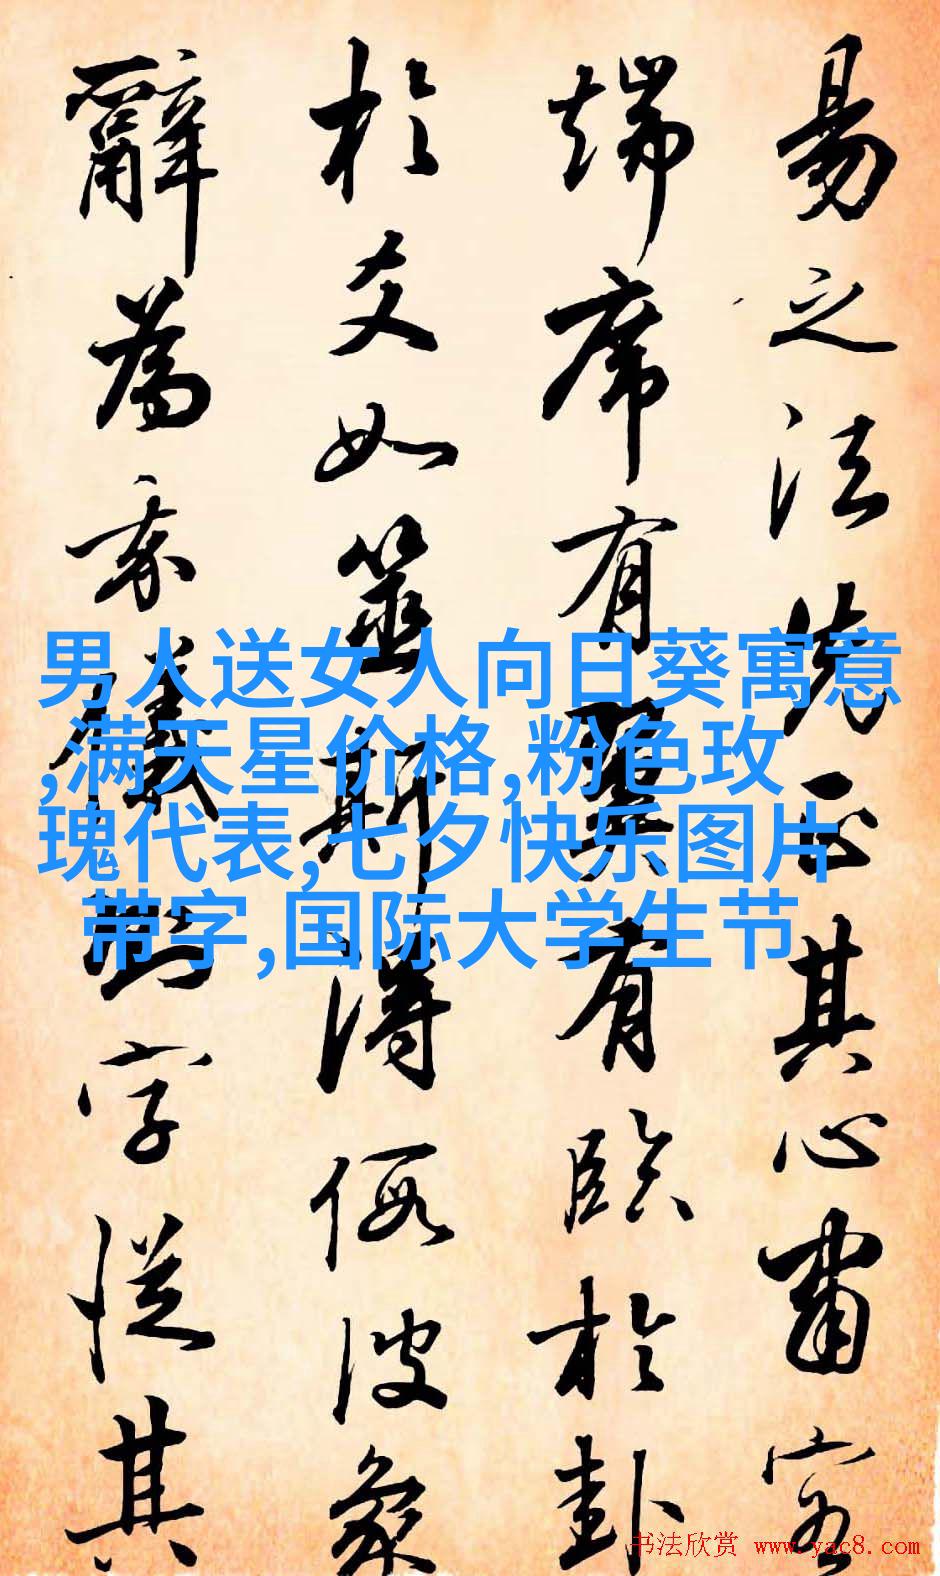 易之法先正其心肅容
端席有翼有臨於卦
於爻如筮斯得假彼象
辭為我儀則字從其
男人送女人向日葵寓意
,满天星价格,粉色玫
瑰代表,七夕快乐图片
带字,国际大学生节
书法欣赏 www.yac8.com